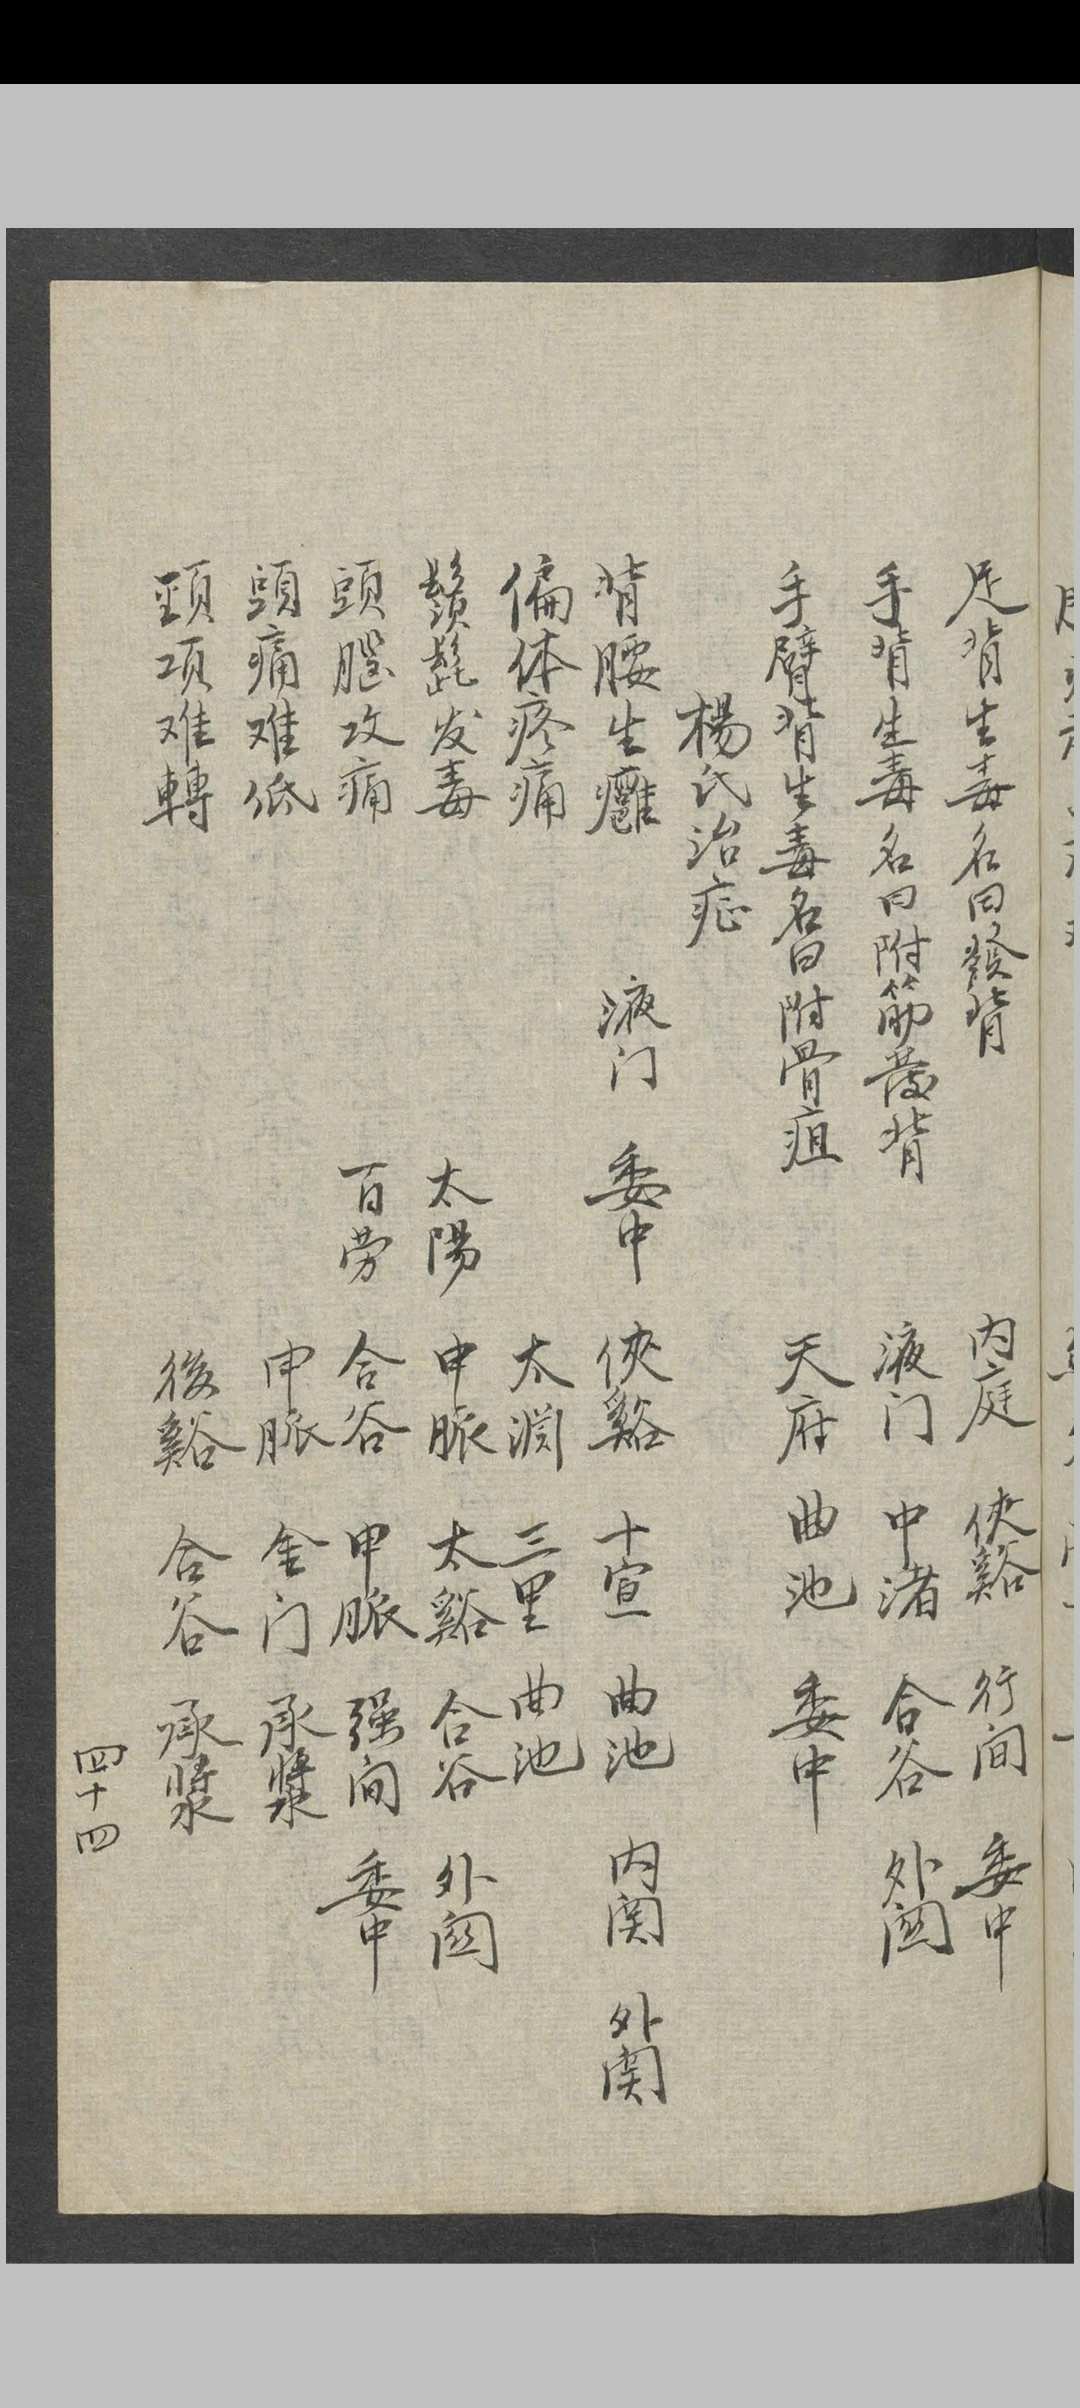 足背生毒名曰發背 内庭 俠谿 行间 委中
手背生毒名曰附筋發背 液门 中渚 合谷 外関
手臂背生毒名曰附骨疽 天府 曲池 委中
楊氏治症
背腰生癰 液门 委中 俠谿 十宣 曲池 内関 外関
偏体疼痛 太渊 三里 曲池
鬚髭发毒 太陽 申脈 太谿 合谷 外関
頭腦攻痛 百劳 合谷 申脈 强间 委中
頭痛难低 申脈 金门 承漿
頸項难轉 後谿 合谷 承漿
四十四